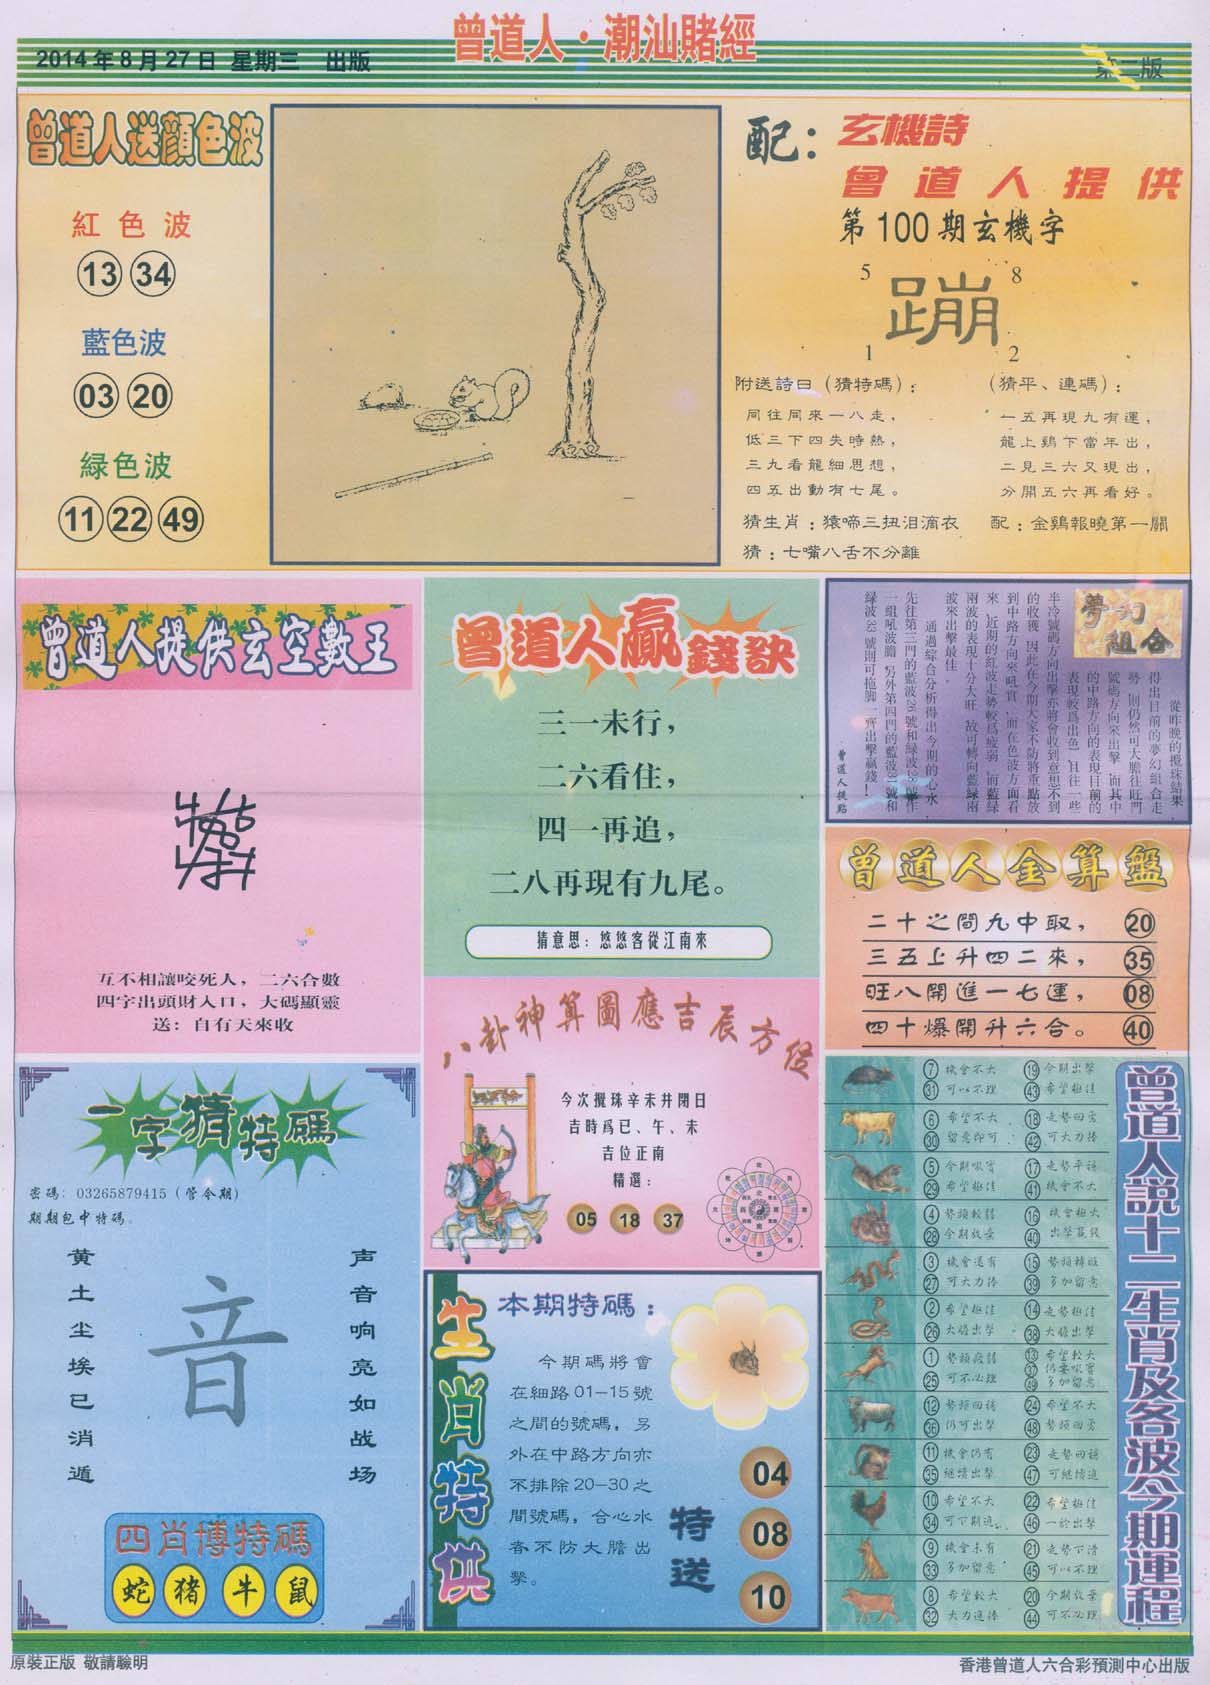 曾道人·潮汕賭經
2014年8月27日 星期三 出版
第二版
曾道人送顔色波
紅色波
13 34
藍色波
03 20
緑色波
11 22 49
配：
玄機詩
曾道人提供
第100期玄機字
5 8
蹦
1 2
附送詩曰（猜特碼）：
同往同來一八走，
低三下四失時熱，
三九看龍細思想，
四五出動有七尾。
（猜平、連碼）：
一五再現九有運，
龍上鷄下當年出，
二見三六又現出，
分開五六再看好。
猜生肖：猿啼三扭泪滴衣
配：金鷄報曉第一關
猜：七嘴八舌不分離
曾道人提供玄空數王
互不相讓咬死人，二六合數
四字出頭財入口，大碼顯靈
送：自有天來收
曾道人贏錢訣
三一未行，
二六看住，
四一再追，
二八再現有九尾。
猜意思：悠悠客從江南來
夢幻組合
從昨晚的攪珠結果
得出目前的夢幻組合走
勢，則仍然可大膽往旺門
號碼方向來出擊，而其中
的中路方向的表現目前的
表現較爲出色，且往一些
半冷號碼方向出擊亦將會收到意想不到
的收獲，因此在今期大家不防將重點放
到中路方向來吼實，而在色波方面看
來，近期的紅波走勢較爲疲弱，而藍緑
兩波的表現十分大旺，故可轉向藍緑兩
波來出擊最佳。
通過綜合分析得出今期的心水
先往第三門的藍波26號和緑波28號作
一組吼波膽，另外第四門的藍波31號和
緑波33號則可拖脚一齊出擊贏錢！
曾道人提點
曾道人金算盤
二十之間九中取， 20
三五上升四二來， 35
旺八開進一七運， 08
四十爆開升六合。 40
八卦神算圖應吉辰方位
今次攪珠辛未井閉日
吉時爲巳、午、未
吉位正南
精選：
05 18 37
一字猜特碼
密碼：03265879415（管令期）
期期包中特碼。
黄土尘埃已消遁
音
声音响亮如战场
四肖博特碼
蛇 猪 牛 鼠
生肖特供
本期特碼：
今期碼將會
在細路01-15號
之間的號碼，另
外在中路方向亦
不排除20-30之
間號碼，合心水
者不防大膽出
擊。
特送
04
08
10
曾道人説十二生肖及各波今期運程
7 機會不大 19 今期出擊
31 可以不理 43 希望極佳
6 希望不大 18 走勢回勇
30 留意即可 42 可大力捧
5 今期吼實 17 走勢平穩
29 希望極佳 41 機會不大
4 勢頭較弱 16 機會極大
28 今期放棄 40 出擊贏錢
3 機會還有 15 勢頭轉旺
27 可大力捧 39 多加留意
2 希望極佳 14 走勢極佳
26 大膽出擊 38 大膽出擊
1 勢頭疲弱 13 希望較大
25 可不必理 37 仍要吼實
49 多加留意
12 勢頭回穩 24 希望不大
36 仍可出擊 48 勢頭回勇
11 機會仍有 23 走勢回穩
35 繼續出擊 47 可繼續追
10 希望不大 22 希望極佳
34 可下期追 46 一於出擊
9 機會未有 21 走勢下滑
33 多加留意 45 可以不理
8 希望較大 20 今期放棄
32 大力追捧 44 可不必理
原裝正版 敬請驗明
香港曾道人六合彩預測中心出版